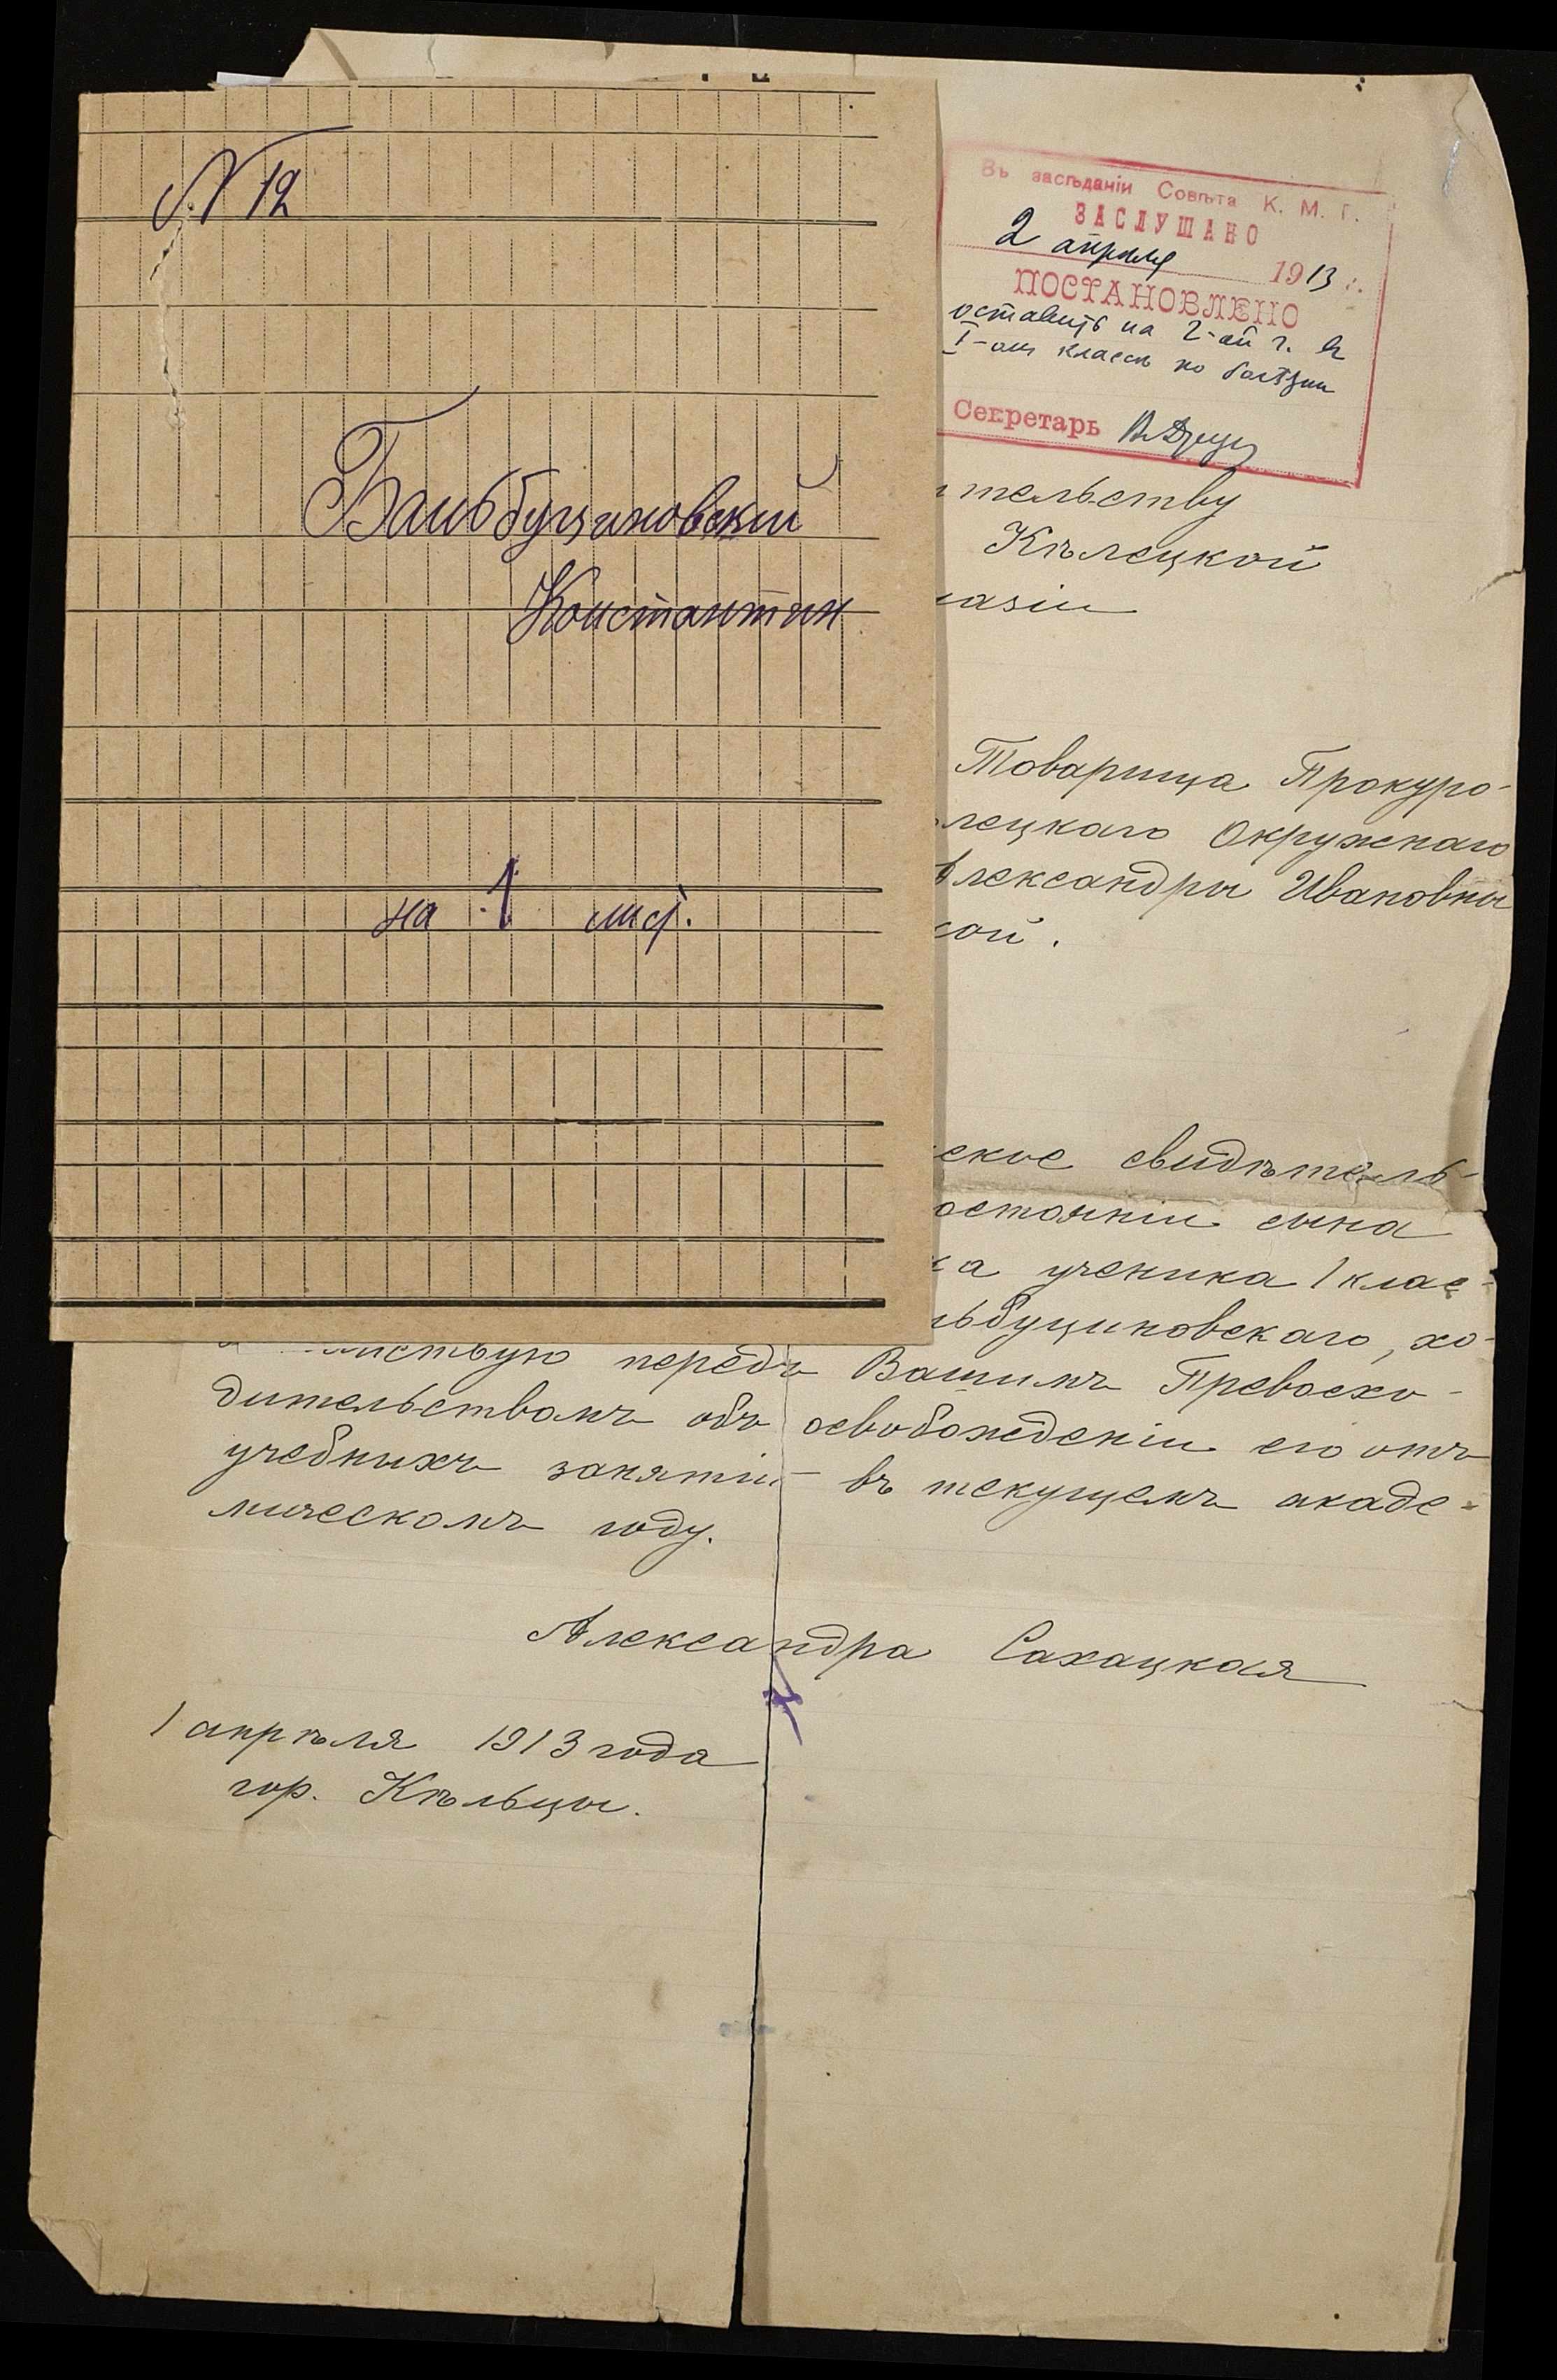 № 12
Баньбуциновский
Константин
на 1 лист.
Въ засѣданіи Совѣта К. М. Г.
ЗАСЛУШАНО
2 апрѣля 1913 г.
ПОСТАНОВЛЕНО
оставить на 2-ой г. въ
I-омъ классѣ по болѣзни
Секретарь
тельству
Кѣлецкой
назіи
Товарища Прокуро-
лецкаго Окружнаго
Александры Ивановны
кой.
ское свидѣтель-
остояніи сына
ка ученика 1 клас-
ньбуциновскаго, хо-
датайствую передъ Вашимъ Превосхо-
дительствомъ объ освобожденіи его отъ
учебныхъ занятій въ текущемъ акаде-
мическомъ году.
Александра Сахацкая
1 апрѣля 1913 года
гор. Кѣльцы.